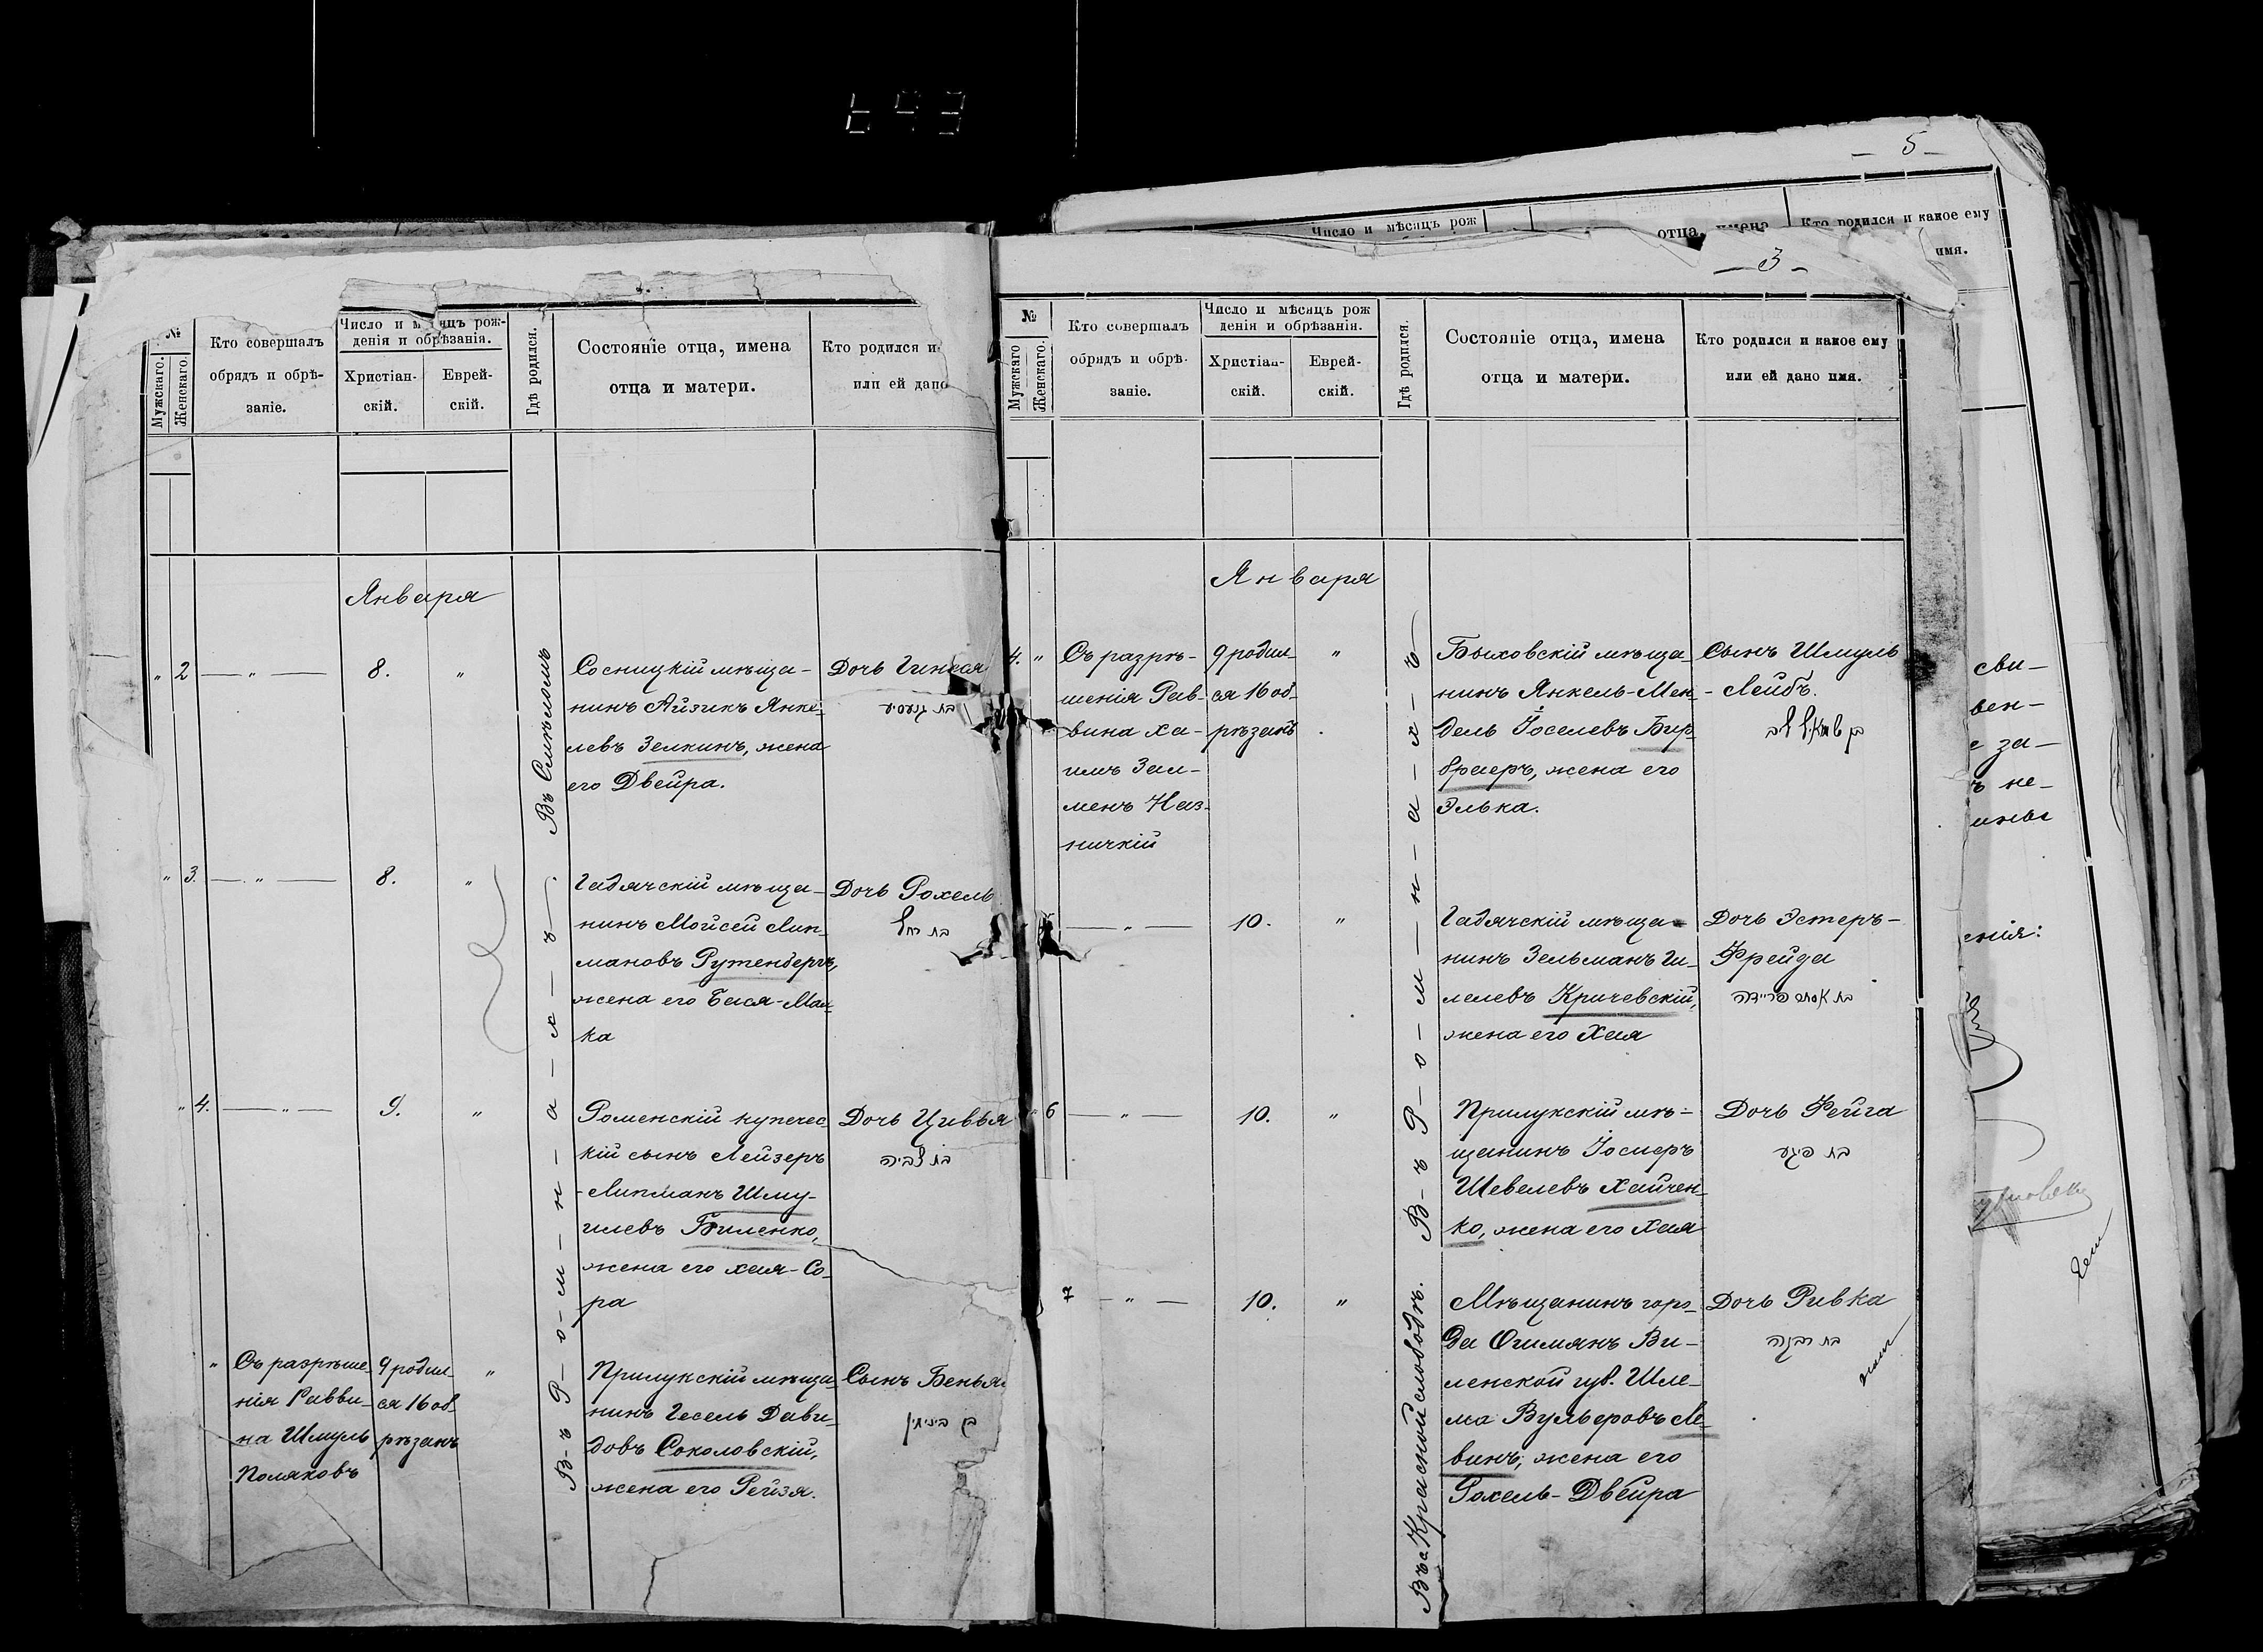 — 5 —
Число и мѣсяцъ рож
отца, имена
Кто родился и какое ему
имя.
№
Мужскаго.
Женскаго.
Кто совершалъ
обрядъ и обрѣ-
заніе.
Число и мѣсяцъ рож-
денія и обрѣзанія.
Христіан-
скій.
Еврей-
скій.
Гдѣ родился.
Состояніе отца, имена
отца и матери.
Кто родился и
или ей дано
Января
" 2 — " — 8. "
Въ Смѣломъ
Сосницкій мѣща-
нинъ Айзикъ Янке-
левъ Зелкинъ, жена
его Двейра.
Дочь
" 3. — " — 8. "
В-ъ Р-о-м-н-а-х-ъ.
Гадячскій мѣща-
нинъ Мойсей Лип-
мановъ Рутенбергъ,
жена его Бася-Мал-
ка
Дочь Рохель
בת רחל
" 4. — " — 9. "
Роменскій купечес-
кій сынъ Лейзеръ
-Липманъ Шму-
илевъ Биленко,
жена его Хая-Со-
ра
Дочь Цивья
בת צביה
" Съ разрѣше-
нія Равви-
на Шмуль
Поляковъ
9 родил-
ся 16 об-
рѣзанъ
"
Прилукскій мѣща-
нинъ Гесель Дави-
довъ Соколовскій,
жена его Рейзя.
Сынъ Бенья
בן בנימין
— 3 —
№
Мужскаго
Женскаго.
Кто совершалъ
обрядъ и обрѣ-
заніе.
Число и мѣсяцъ рож
денія и обрѣзанія.
Христіан-
скій.
Еврей-
скій.
Гдѣ родился.
Состояніе отца, имена
отца и матери.
Кто родился и какое ему
или ей дано имя.
Января
4. "
Съ разрѣ-
шенія Рав-
вина Ха-
имъ Зал-
менъ
9 родил-
ся 16 об-
рѣзанъ
"
В-ъ Р-о-м-н-а-х-ъ
Быховскій мѣща-
нинъ Янкель-Мен-
дель Іоселевъ Бир-
браеръ, жена его
Элька.
Сынъ Шмуль
-Лейбъ.
— " — 10. "
Гадячскій мѣща-
нинъ Зельманъ Ги-
лелевъ Кричевскій,
жена его Хая
Дочь Эстеръ-
Фрейда
בת אסתר פריידה
" 6 — " — 10. "
Прилукскій мѣ-
щанинъ Іосифъ
Шевелевъ Хайчен-
ко, жена его Хая
Дочь Фейга
בת פיגע
7 — " — 10. "
Въ Красной слободѣ.
Мѣщанинъ горо-
да Ошмянъ Ви-
ленской губ. Шле-
ма Вульфовъ Ле-
винъ, жена его
Рохель-Двейра
Дочь Ривка
בת רבקה
сви-
вен-
за-
ъ не-
енія: